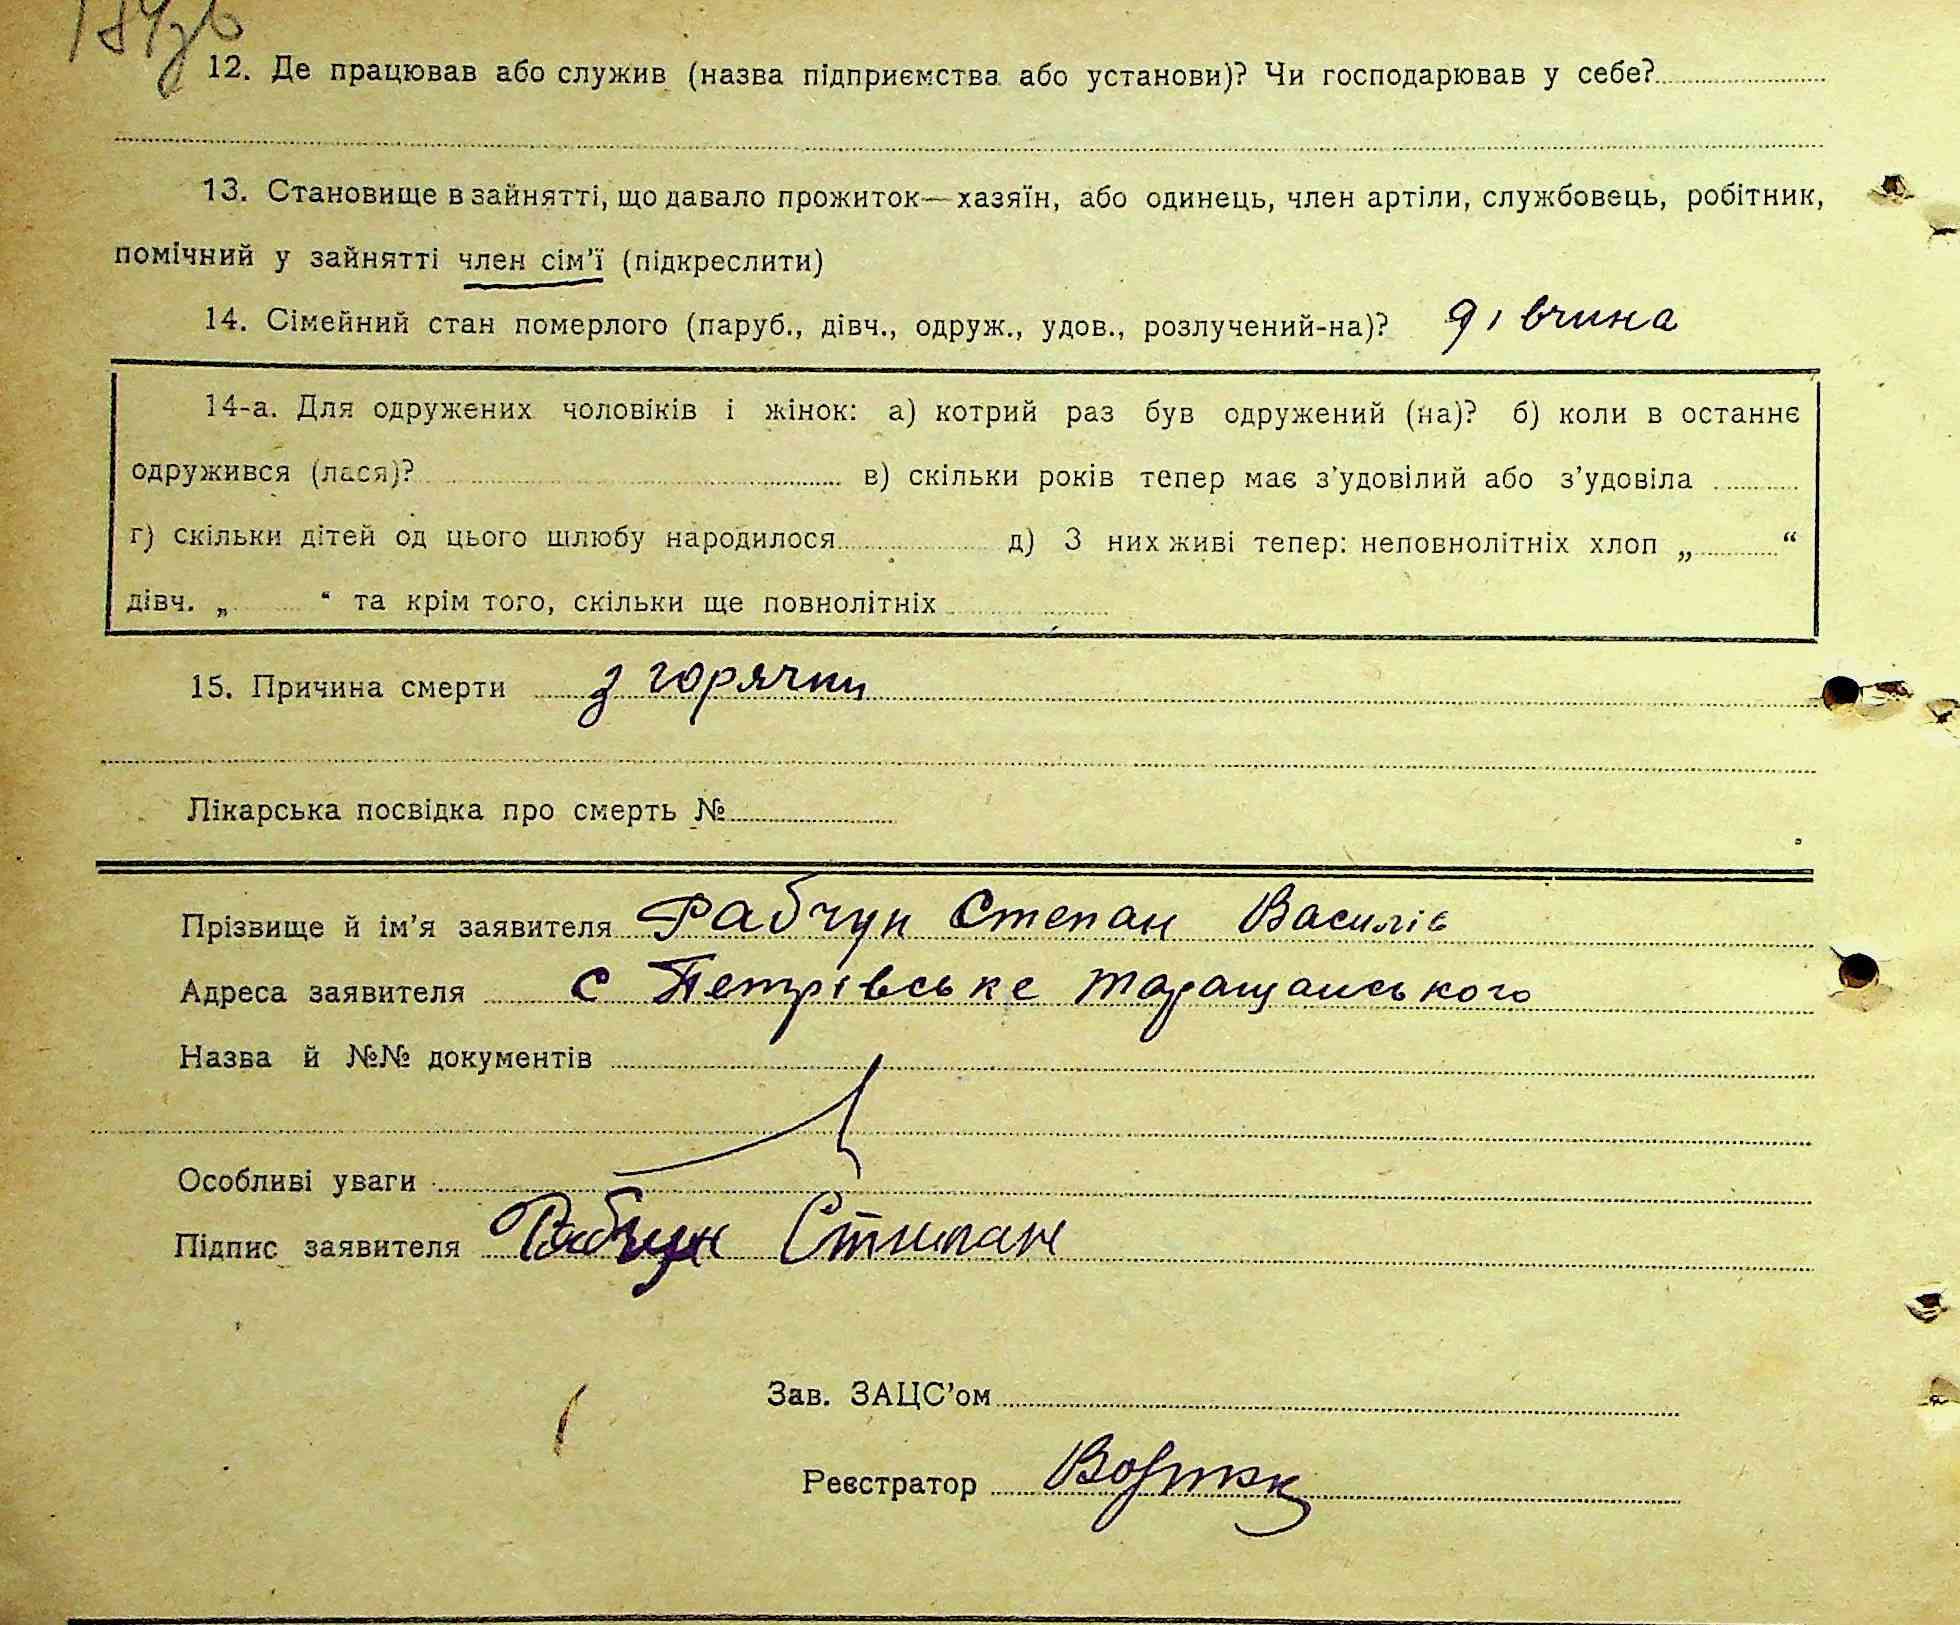 184зв
12. Де працював або служив (назва підприємства або установи)? Чи господарював у себе?
13. Становище в зайнятті, що давало прожиток—хазяїн, або одинець, член артіли, службовець, робітник,
помічний у зайнятті член сім'ї (підкреслити)
14. Сімейний стан померлого (паруб., дівч., одруж., удов., розлучений-на)? дівчина
14-а. Для одружених чоловіків і жінок: а) котрий раз був одружений (на)? б) коли в останнє
одружився (лася)? в) скільки років тепер має з'удовілий або з'удовіла
г) скільки дітей од цього шлюбу народилося д) З них живі тепер: неповнолітніх хлоп „ “
дівч. „ “ та крім того, скільки ще повнолітніх
15. Причина смерти з горячки
Лікарська посвідка про смерть №
Прізвище й ім'я заявителя Рабчун Степан Василів
Адреса заявителя с Петрівське таращанського
Назва й №№ документів
Особливі уваги
Підпис заявителя Рабчун Стипан
Зав. ЗАЦС'ом
Реєстратор